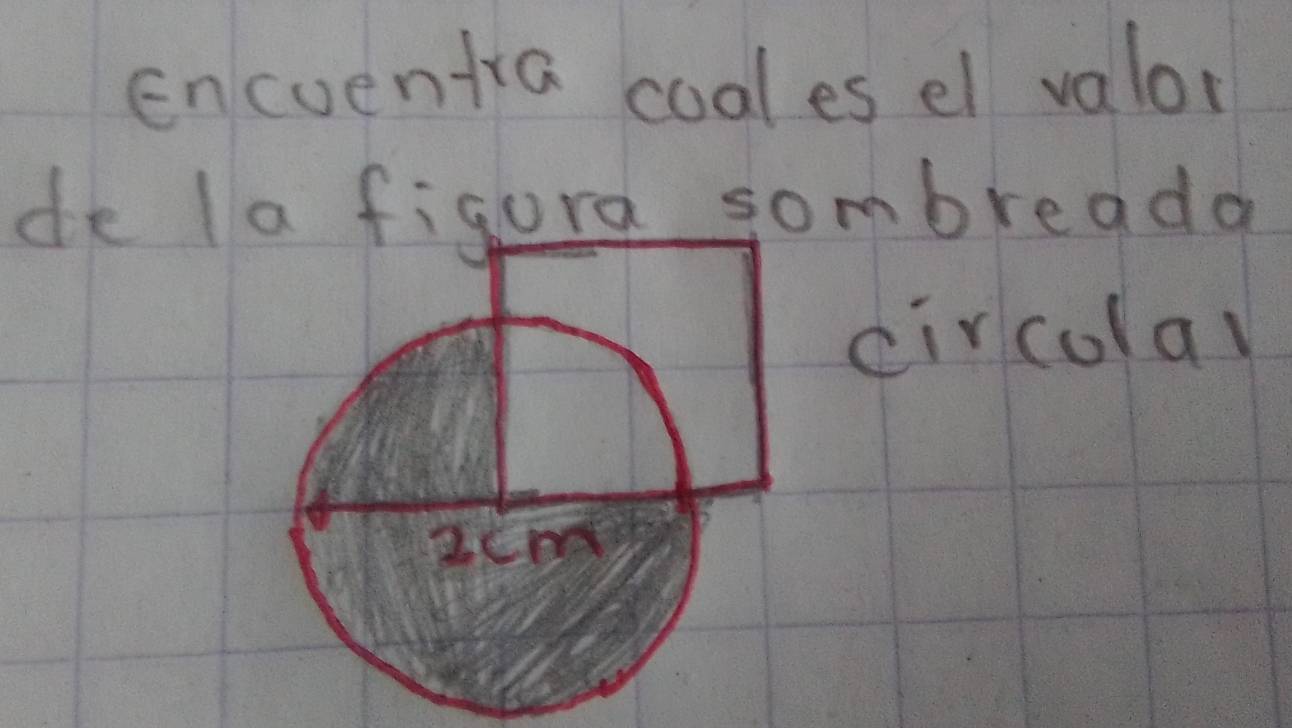 Encuentra cual es el valor
de la figura sombreada
circular
2cm